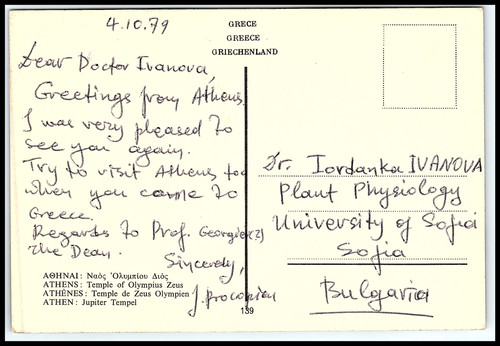 4.10.79
GRECE
GREECE
GRIECHENLAND
Dear Doctor Ivanova,
Greetings from Athens.
I was very pleased to
see you again.
Try to visit Athens too
when you come to
Greece.
Regards to Prof.
the Dean.
Sincerely,
ΑΘΗΝΑΙ : Ναὸς Ὀλυμπίου Διὸς
ATHENS : Temple of Olympius Zeus
ATHÈNES : Temple de Zeus Olympien
ATHEN : Jupiter Tempel
139
Dr. Iordanka IVANOVA
Plant Physiology
University of Sofia
Sofia
Bulgaria